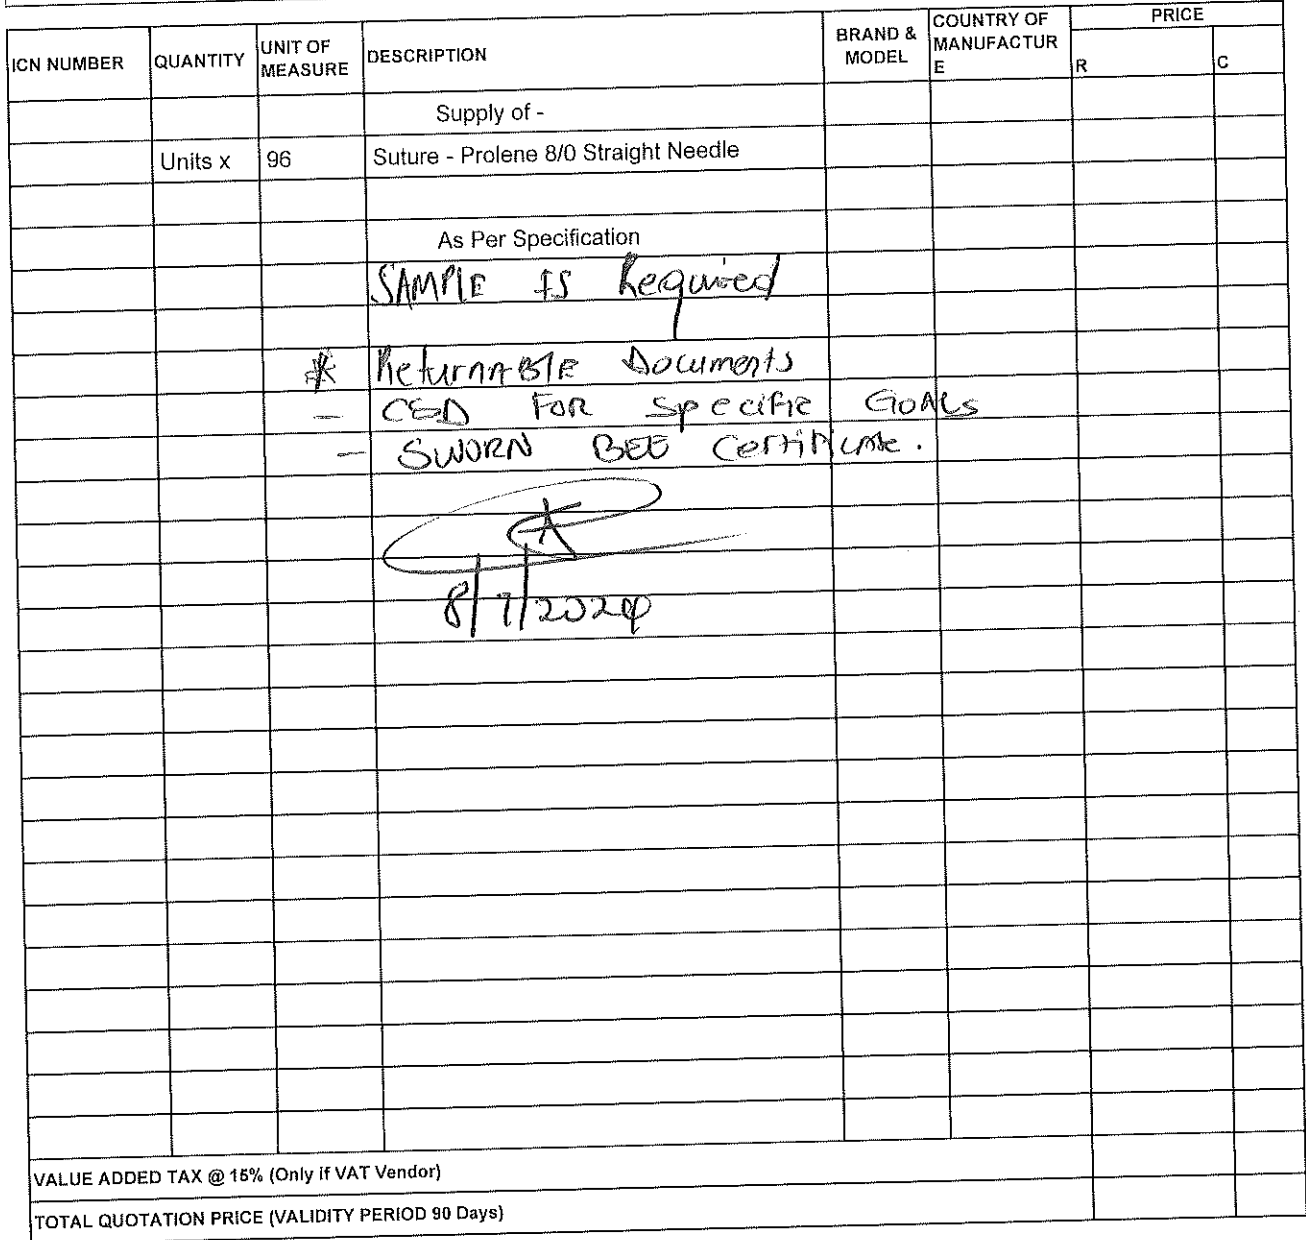 ICN NUMBER QUANTITY UNIT OF MEASURE DESCRIPTION BRAND & MODEL COUNTRY OF MANUFACTUR E PRICE R C
Supply of -
Units x 96 Suture - Prolene 8/0 Straight Needle
As Per Specification
SAMPLE IS Required
* Returnable Documents
- CSD FOR Specific GOALS
- SWORN BEE Certificate.
8/7/2024
VALUE ADDED TAX @ 15% (Only if VAT Vendor)
TOTAL QUOTATION PRICE (VALIDITY PERIOD 90 Days)